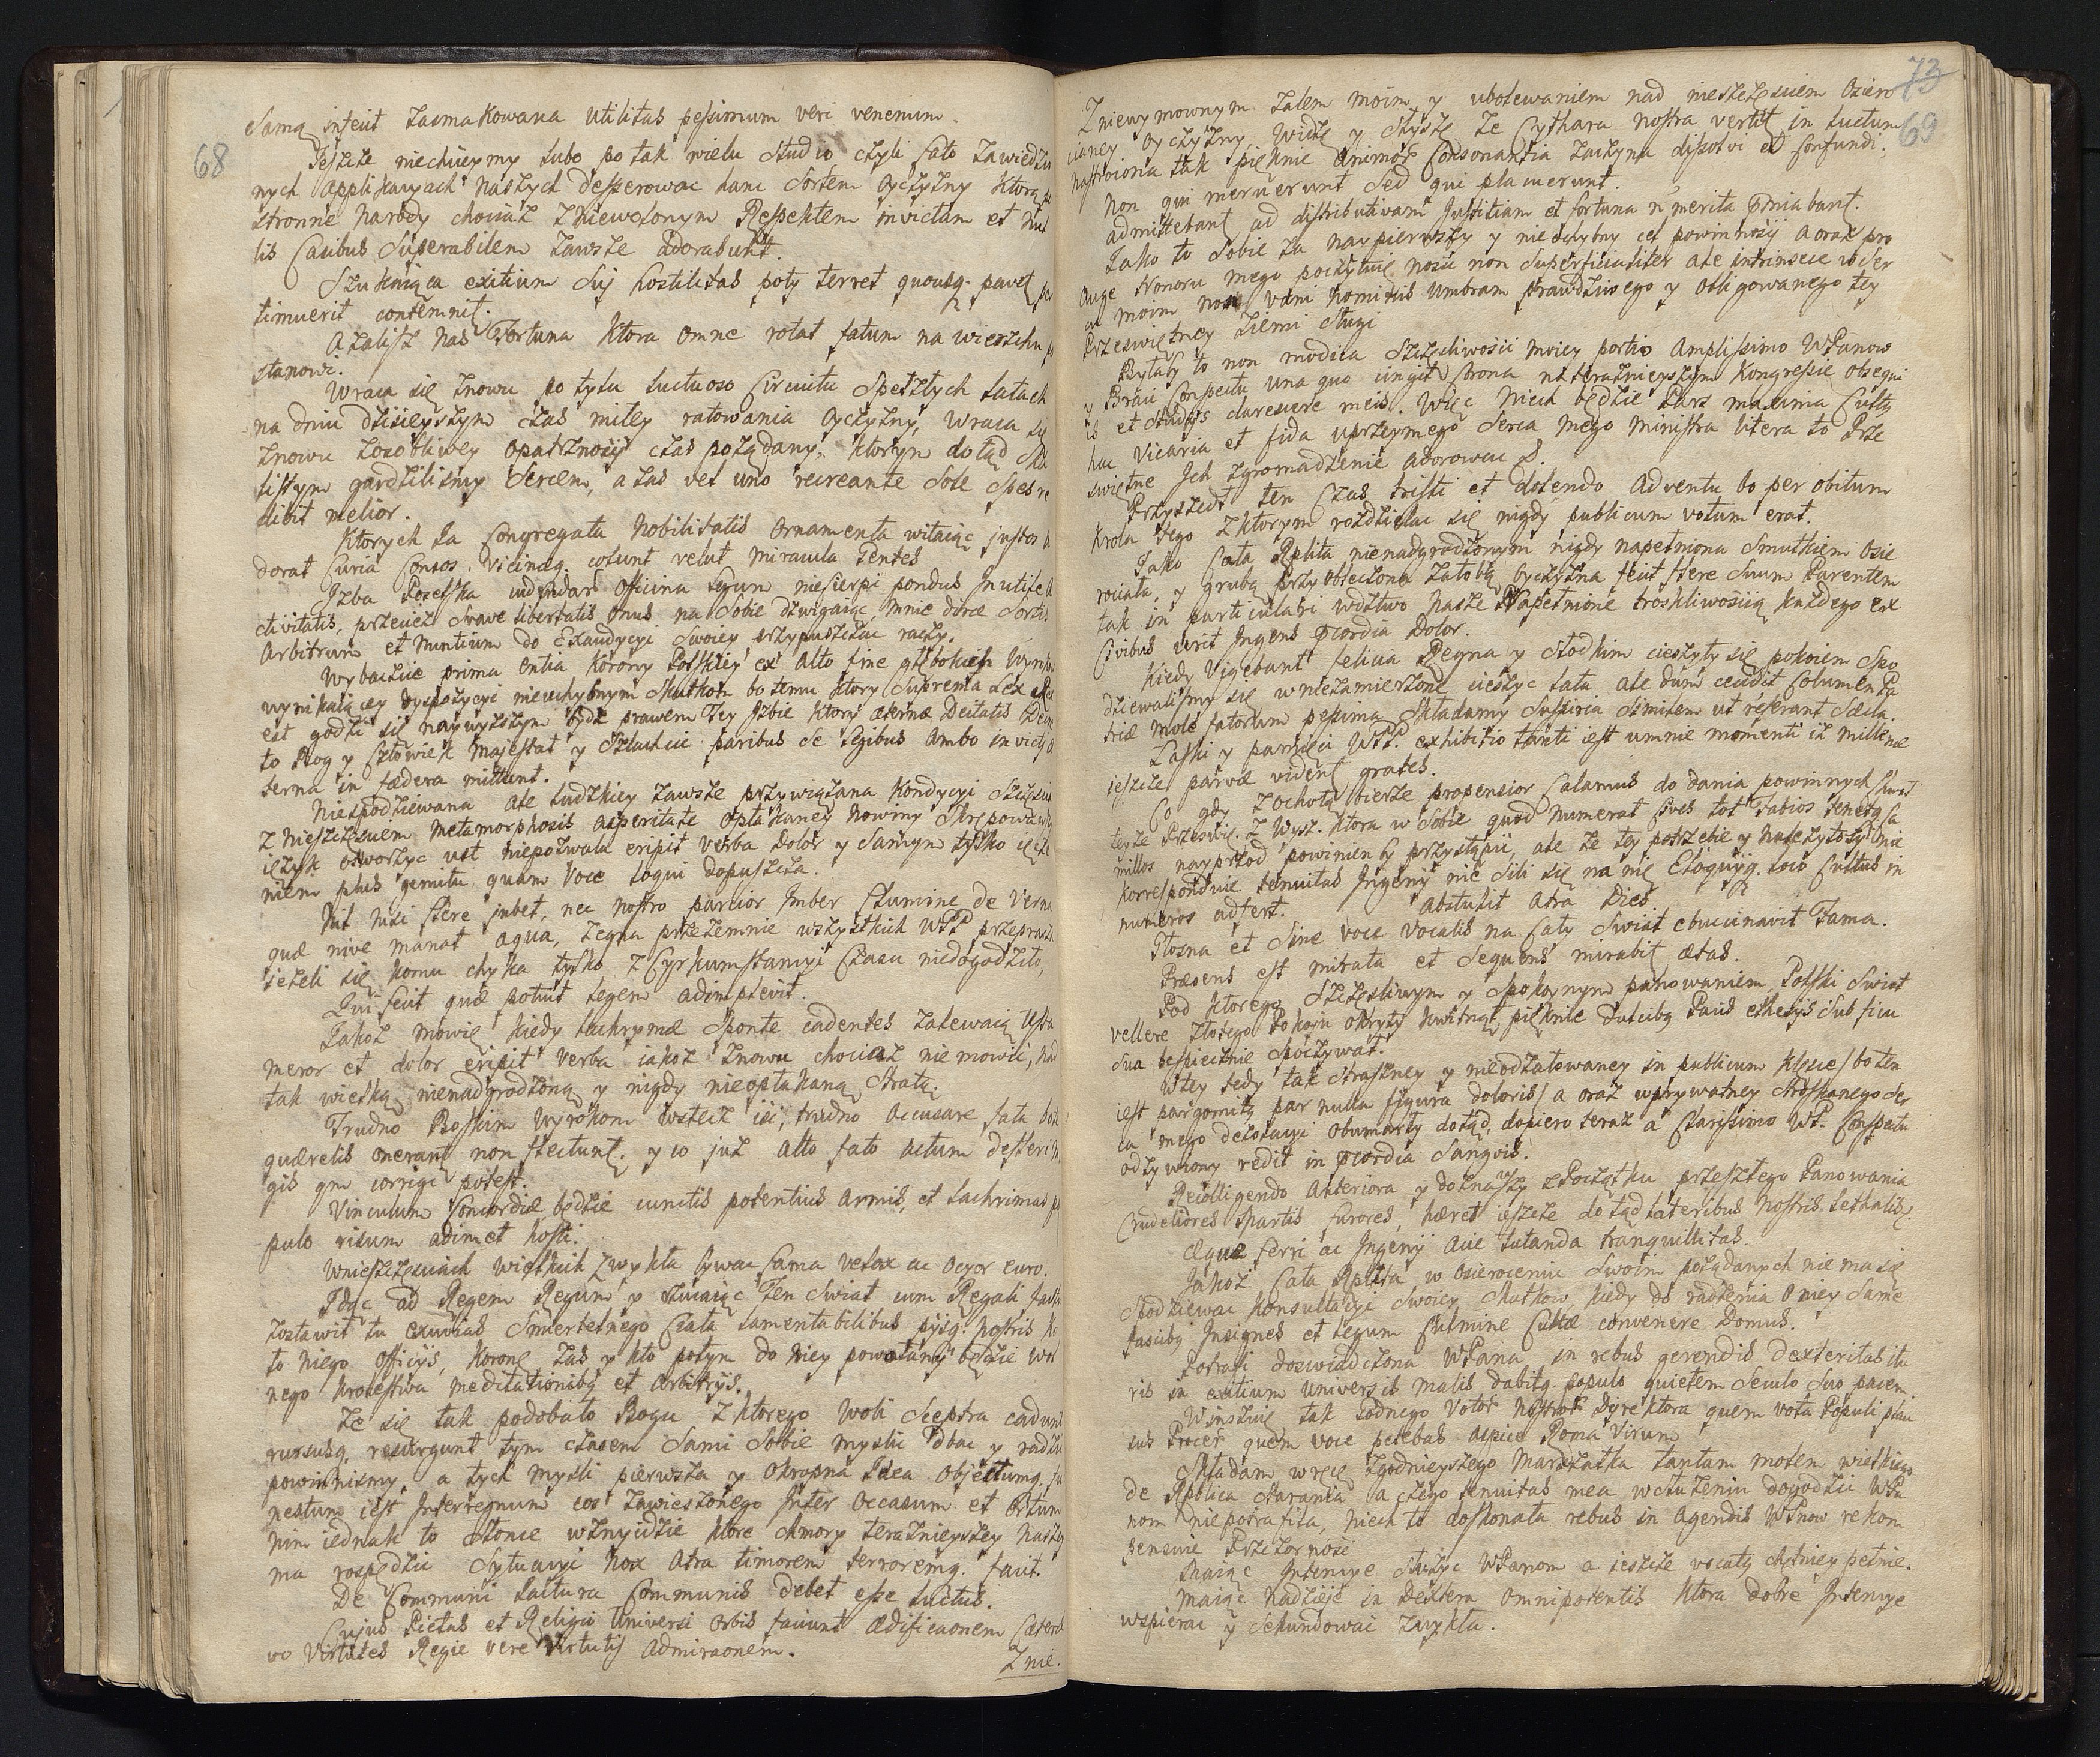 68
Samą infecit zasmakowana utilitas pessimum veri venenum.
Jeszcze niechciejmy lubo po tak wielu studio czyli fato zawiedzio
nych applikacyach naszych desperować hanc sortem Oyczyzny ktorą
stronne narody chociaż zniewolonym Respektem invictam et nul
lis Casibus superabilem zawsze adorabunt.
Szukaiąca exitium sui hostilitas poty terret quousq. pavet
timuerit contemnit.
Azalisz nas Fortuna ktora omne rotat fatum na wierzchu
stanowi.
Wraca się znowu po tylu luctuoso Circuitu spełzłych latach
na dniu dzisieyszym czas miley ratowania Oyczyzny, wraca się
znowu zosobliwey opatrznosci czas pożądany, ktorym dotąd
listym gardzilismy sercem, a zas vel uno recreante sole spes re
dibit melior.
Ktorych za Congregata Nobilitatis ornamenta witaiąc
dorat Curia Consos, Vicinaeq. colunt velut miracula Gentes
Izba Poselska Officina legum niesierpi pondus Inutile
ctivitatis, przeciez suave libertatis onus na sobie dzwigaiąc, mnie dirae sortis
Arbitrum et Nuntium do Exaudycyi swoiey przypuszczac raczy.
Wybaczcie prima entia Korony Polskiey ex alto sine głębokich
wynikaiącey dyspozycyi nieuchybnym skutkom bo temu ktory suprema Lex
est godzi się naywyższym bydz prawem Jey Izbie ktory aeternae Deitatis
to Bog y Człowiek Majestat y Szlachcic paribus se legibus ambo invicti
terna in faedera mittunt.
Niespodziewana ale ludzkiey zawsze przywiązana kondycyi
z nieszczęsciem metamorphosis asperitate opłakaney nowiny skrępowawszy
ięzyk otworzyc ust niepozwala eripit verba dolor y samym tylko ięcze
niem plus gemitu quam voce loqui dopuszcza.
Nil nisi flere jubet, nec nostro parcior Imber flumine, de Verna
quae nive manat aqua, żegna przezemnie wszystkich WPP przeprasza
ieżeli się komu chyba tylko z Cyrkumstancyi czasu niedogodziło,
Qui fecit quae potuit legem adimplevit.
Jakoż mowię kiedy lachrymae sponte cadentes zalewaią usta
meror et dolor eripit verba iakoż znowu chociaż nie mowic, nad
tak wielką nienadgrodzoną y nigdy nieopłakaną stratą.
Trudno Boskim wyrokom wstecz isc, trudno accusare fata
quaerelis onerant non flectunt, y co już alto fato actum defleri
gis qm corrigi potest.
Vinculum Concordiae będzie cunctis potentius armis, et lachrimas po
pulo risum adimet hosti.
Wnieszczęsciach wielkich zwykła bywac fama velox ac ocyor euro.
Idąc ad Regem Regum y rzucaiąc ten Swiat cum Regali
zostawił tu exuvias smiertelnego ciała lamentabilibus pijsq. nostris
to niego officijs, Koronę zas y kto potym do niey powołany będzie
nego Krolestwa meditationibq et arbitrijs.
Ze się tak podobało Bogu z ktorego woli sceptra cadunt
rursusq. resurgunt tym czasem sami sobie myslic dbac y radzic
powinnismy, a tych mysli pierwsza y okropna Idea objectumq.
nestum iest Interregnum cos zawieszonego Inter Occasum et Ortum
nim iednak to słonce wznyidzie ktore chmory teraznieyszey naszey
ma rospędzic Sytuacyi nox atra timorem terroremq. facit.
De Communi iactura communis debet esse luctus.
Cujus Pietas et Religio Universi Orbis faciunt aedificaonem
vo Virtutes Regie vere Virtutis admiraonem.
Znie.
73
69
Zniewymownym żalem moim y ubolewaniem nad nieszczęsciem Osiero
ciałey Oyczyzny widzę y słyszę że Cythara nostra vertit in luctum
nastroiona tak pięknie animor Consonantia zaczyna dissolvi et confundi.
Non qui meruerunt sed qui placuerunt.
admittebant ad distributivam Justitiam et fortuna n merita pmiabant.
Jako to sobie za naypierwszy y nie chybny cel powinnosci a oraz pro
auge Honoru mego poczytuię nosic non superficialiter ale intrinsece w ser
cu moim non vani nominis umbram prawdziwego y obligowanego tey
Przeswiętney Ziemi sługi
Byłaby to non modica szczęsliwosci moiey portio Amplissimo WPanow
y Braci Conspectu una quo cingit Corona na teraznieyszym Kongressie obsequi
is et studijs clarescere meis. Więc niech będzie pars maxima Cultq
hac Vicaria et fida uprzeymego serca mego ministra litera to Prze
swiętne Ich zgromadzenie adorowac D.
Przyszedł ten Czas tristi et dolendo adventu bo per obitum
Krola tego z ktorym rozdzielac się nigdy publicum votum erat.
Jako Cała Rplita nienadgrodzonym nigdy napełniona smutkiem osie
rociała, y grubą przyobleczona żałobą Oyczyzna fecit flere suum Parentem
tak in particulari wdztwo nasze Napełnione troskliwoscią każdego ex
Civibus urit Ingens pcordia Dolor.
Kiedy vigebant felicia Regna y słodkim cieszyły się pokoiem spo
dziewalismy się wniezamierzone cieszyc lata ale dum cecidit Columen Pa
triae mole fatorum pessima składamy suspiria similem ut referant saecla.
Łaski y pamięci WPP. exhibitio tanti iest umnie momenti iż millenae
ieszcze parvae videnr grates.
Co gdy z ochotą bierze propensior Calamus do dania powinnych
teyże Przeswię. Z Wysz. ktora w sobie quod numerat Cives tot Fabios
millos nayprzod powinien by przystąpic, ale że tey potrzebie y należytosci nie
korresponduie tenuitas Ingenij nic sili się na nię Eloquijq. loco Cultus in
numeros adfert. abstulit atra Dies.
Głosna et sine voce vocalis na cały Swiat ebuccinavit Fama.
Praesens est mirata et sequens mirabit aetas.
Pod ktorego szczęsliwym y spokoynym panowaniem Polski Swiat
vellere złotego Pokoju okryty kwitnął pięknie dulcibq Pacis
sua bespiecznie spoczywał.
Wtey tedy tak straszney y nieodżałowaney in publicum klęsce/ bo ten
iest par nulla figura doloris/ a oraz wprywatney stroskanego ser
ca mego dezolacyi obumarły dotąd, dopiero teraz a Clarissimo WP. Conspectu
odżywiony redit in pcordia Sangvis.
Recolligendo anteriora y doznaszy z Początku przeszłego Panowania
crudeliores spartis furores, haeret ieszcze dotąd lateribus nostris lethalis
aeque ferri ac Ingenij acie tutanda tranquillitas.
Jakoż Cała Rplita w Osieroceniu swoim pożądanych nie ma się
spodziewac konsultacyi swoiey skutkow, kiedy do radzenia o niey same
fascibq Insignes et legum Culmine Cultae convenere Domus.
Potrafi doswiadczona WPana in rebus gerendis dexteritas itu
ris in exitium universis malis dabitq. populo quietem seculo suo pacem
Winszuię tak godnego Votor nostror Dyrektora quem vota Populi plau
sus Procer quem voce petebas aspice Roma Virum
Składam w ręce zgodnieyszego Marszałka tantam molem wielkiego
de Rpblica starania a czego tenuitas mea wczłużeniu dogodzic WPa
nom niepotrafiła, niech to doskonała rebus in agendis WPanow rekom
pensuie Przezornosc
Maiąc Intencye służyc WPanom a ieszcze vocatq chętniey pełnie.
Maiąc nadzieję in dextera omnipotentis ktora dobre Intencye
wspierac y sekundowac zwykła.